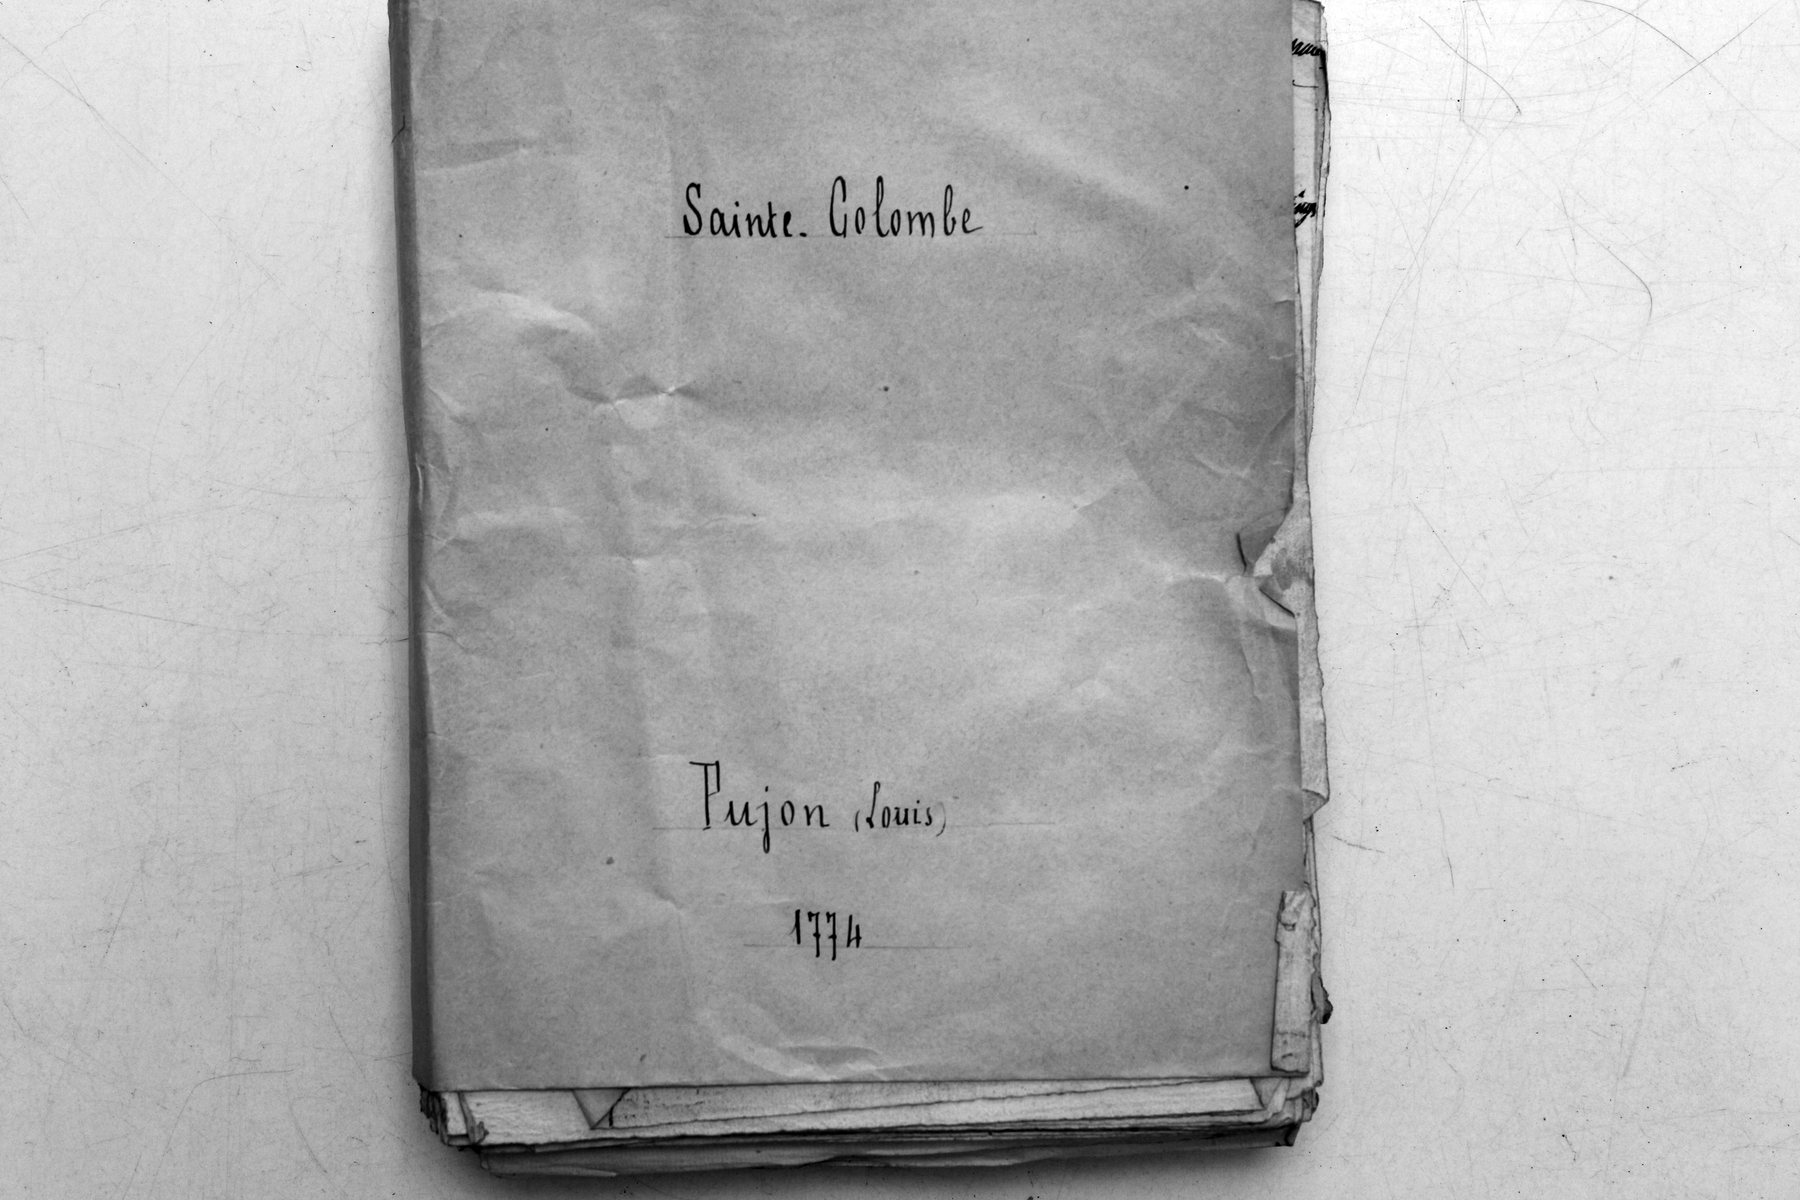 Sainte. Colombe
Pujon (Louis)
1774